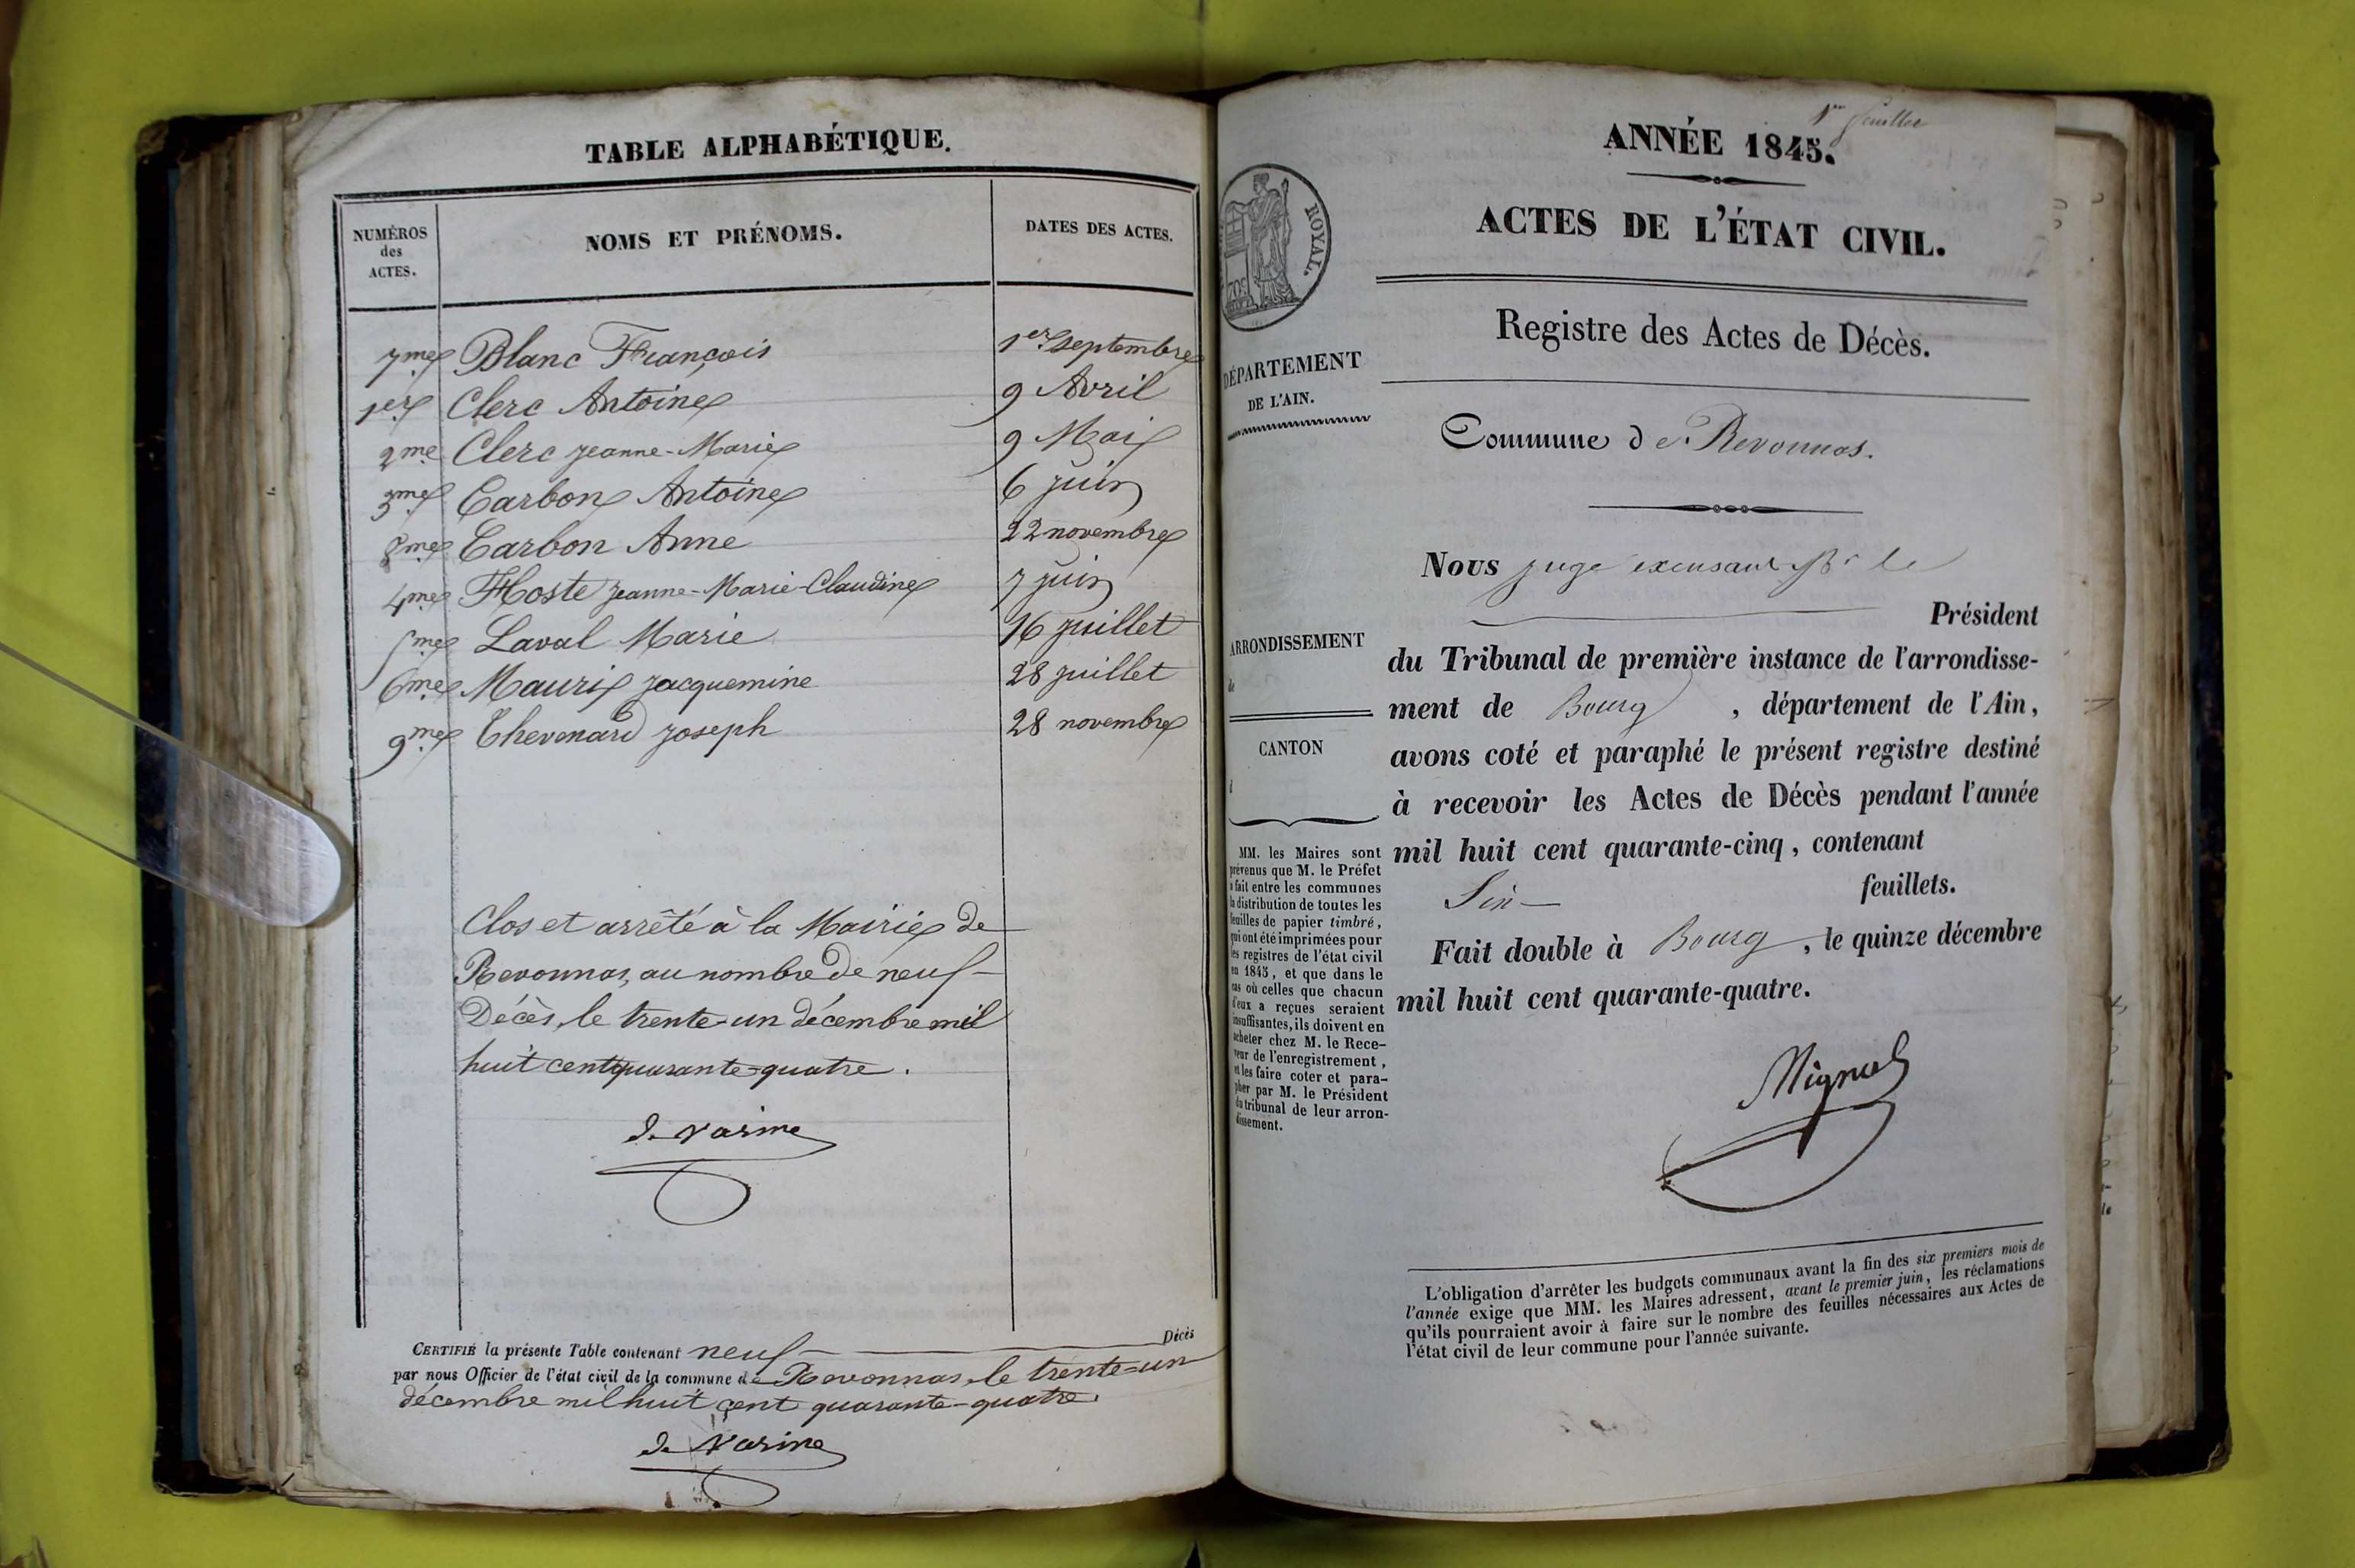 TABLE ALPHABÉTIQUE.
NUMÉROS
des
ACTES.
NOMS ET PRÉNOMS.
DATES DES ACTES.
7me Blanc François 1er septembre
1er Clerc Antoine 9 Avril
2me Clerc jeanne-Marie 9 Mai
3me Carbon Antoine 6 juin
8me Carbon Anne 22 novembre
4me Hoste jeanne-Marie-Claudine 7 juin
5me Laval Marie 16 juillet
6me Mauris jacquemine 28 juillet
9me Thevenard joseph 28 novembre
Clos et arrêté à la Mairie de
Revonnas, au nombre de neuf
Décès, le trente-un décembre mil
huit cent quarante-quatre.
CERTIFIÉ la présente Table contenant neuf Décès
par nous Officier de l'état civil de la commune de Revonnas, le trente-un
décembre mil huit cent quarante-quatre.
1er feuillet
ANNÉE 1845.
ACTES DE L'ÉTAT CIVIL.
ROYAL.
Registre des Actes de Décès.
DÉPARTEMENT
DE L'AIN.
Commune de Revonnas.
Nous juge le
Président
ARRONDISSEMENT
de
CANTON
d
du Tribunal de première instance de l'arrondisse-
ment de Bourg, département de l'Ain,
avons coté et paraphé le présent registre destiné
à recevoir les Actes de Décès pendant l'année
mil huit cent quarante-cinq, contenant
feuillets.
Fait double à Bourg, le quinze décembre
mil huit cent quarante-quatre.
MM. les Maires sont
prévenus que M. le Préfet
a fait entre les communes
la distribution de toutes les
feuilles de papier timbré,
qui ont été imprimées pour
les registres de l'état civil
en 1845, et que dans le
cas où celles que chacun
d'eux a reçues seraient
insuffisantes, ils doivent en
acheter chez M. le Rece-
veur de l'enregistrement,
et les faire coter et para-
pher par M. le Président
du tribunal de leur arron-
dissement.
L'obligation d'arrêter les budgets communaux avant la fin des six premiers mois de
l'année exige que MM. les Maires adressent, avant le premier juin, les réclamations
qu'ils pourraient avoir à faire sur le nombre des feuilles nécessaires aux Actes de
l'état civil de leur commune pour l'année suivante.